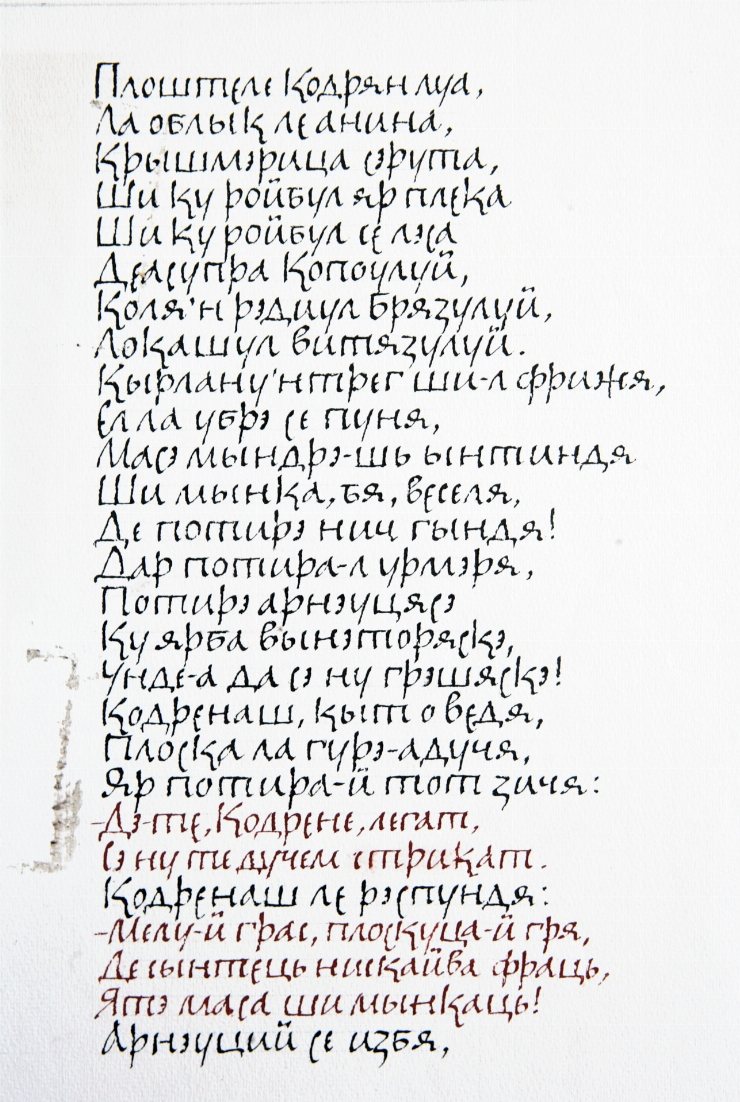 Плоштеле Кодрян луа,
Ла облык ле анина,
Крышмэрица сэрута,
Ши ку ройбул яр плека
Ши ку ройбул се лэса
Деасупра Копоулуй,
Коля'н рэдиул Брязулуй,
Локашул витязулуй.
Кырлану'нтрег ши-л фрижя,
Ел ла убрэ се пуня,
Масэ мындрэ-шь ынтиндя
Ши мынка, бя, веселя,
Де потирэ нич гындя!
Дар потира-л урмэря,
Потирэ арнэуцясэ
Ку ярба вынэторяскэ,
Унде-а да сэ ну грэшяскэ!
Кодренаш, кыт о ведя,
Плоска ла гурэ-адучя,
Яр потира-й тот зичя:
-Дэ-те, Кодрене, легат,
Сэ ну те дучем стрикат.
Кодренаш ле рэспундя:
-Мелу-й грас, плоскуца-й гря,
Де сынтець нискайва фраць,
Ятэ маса ши мынкаць!
Арнэуций се избя,